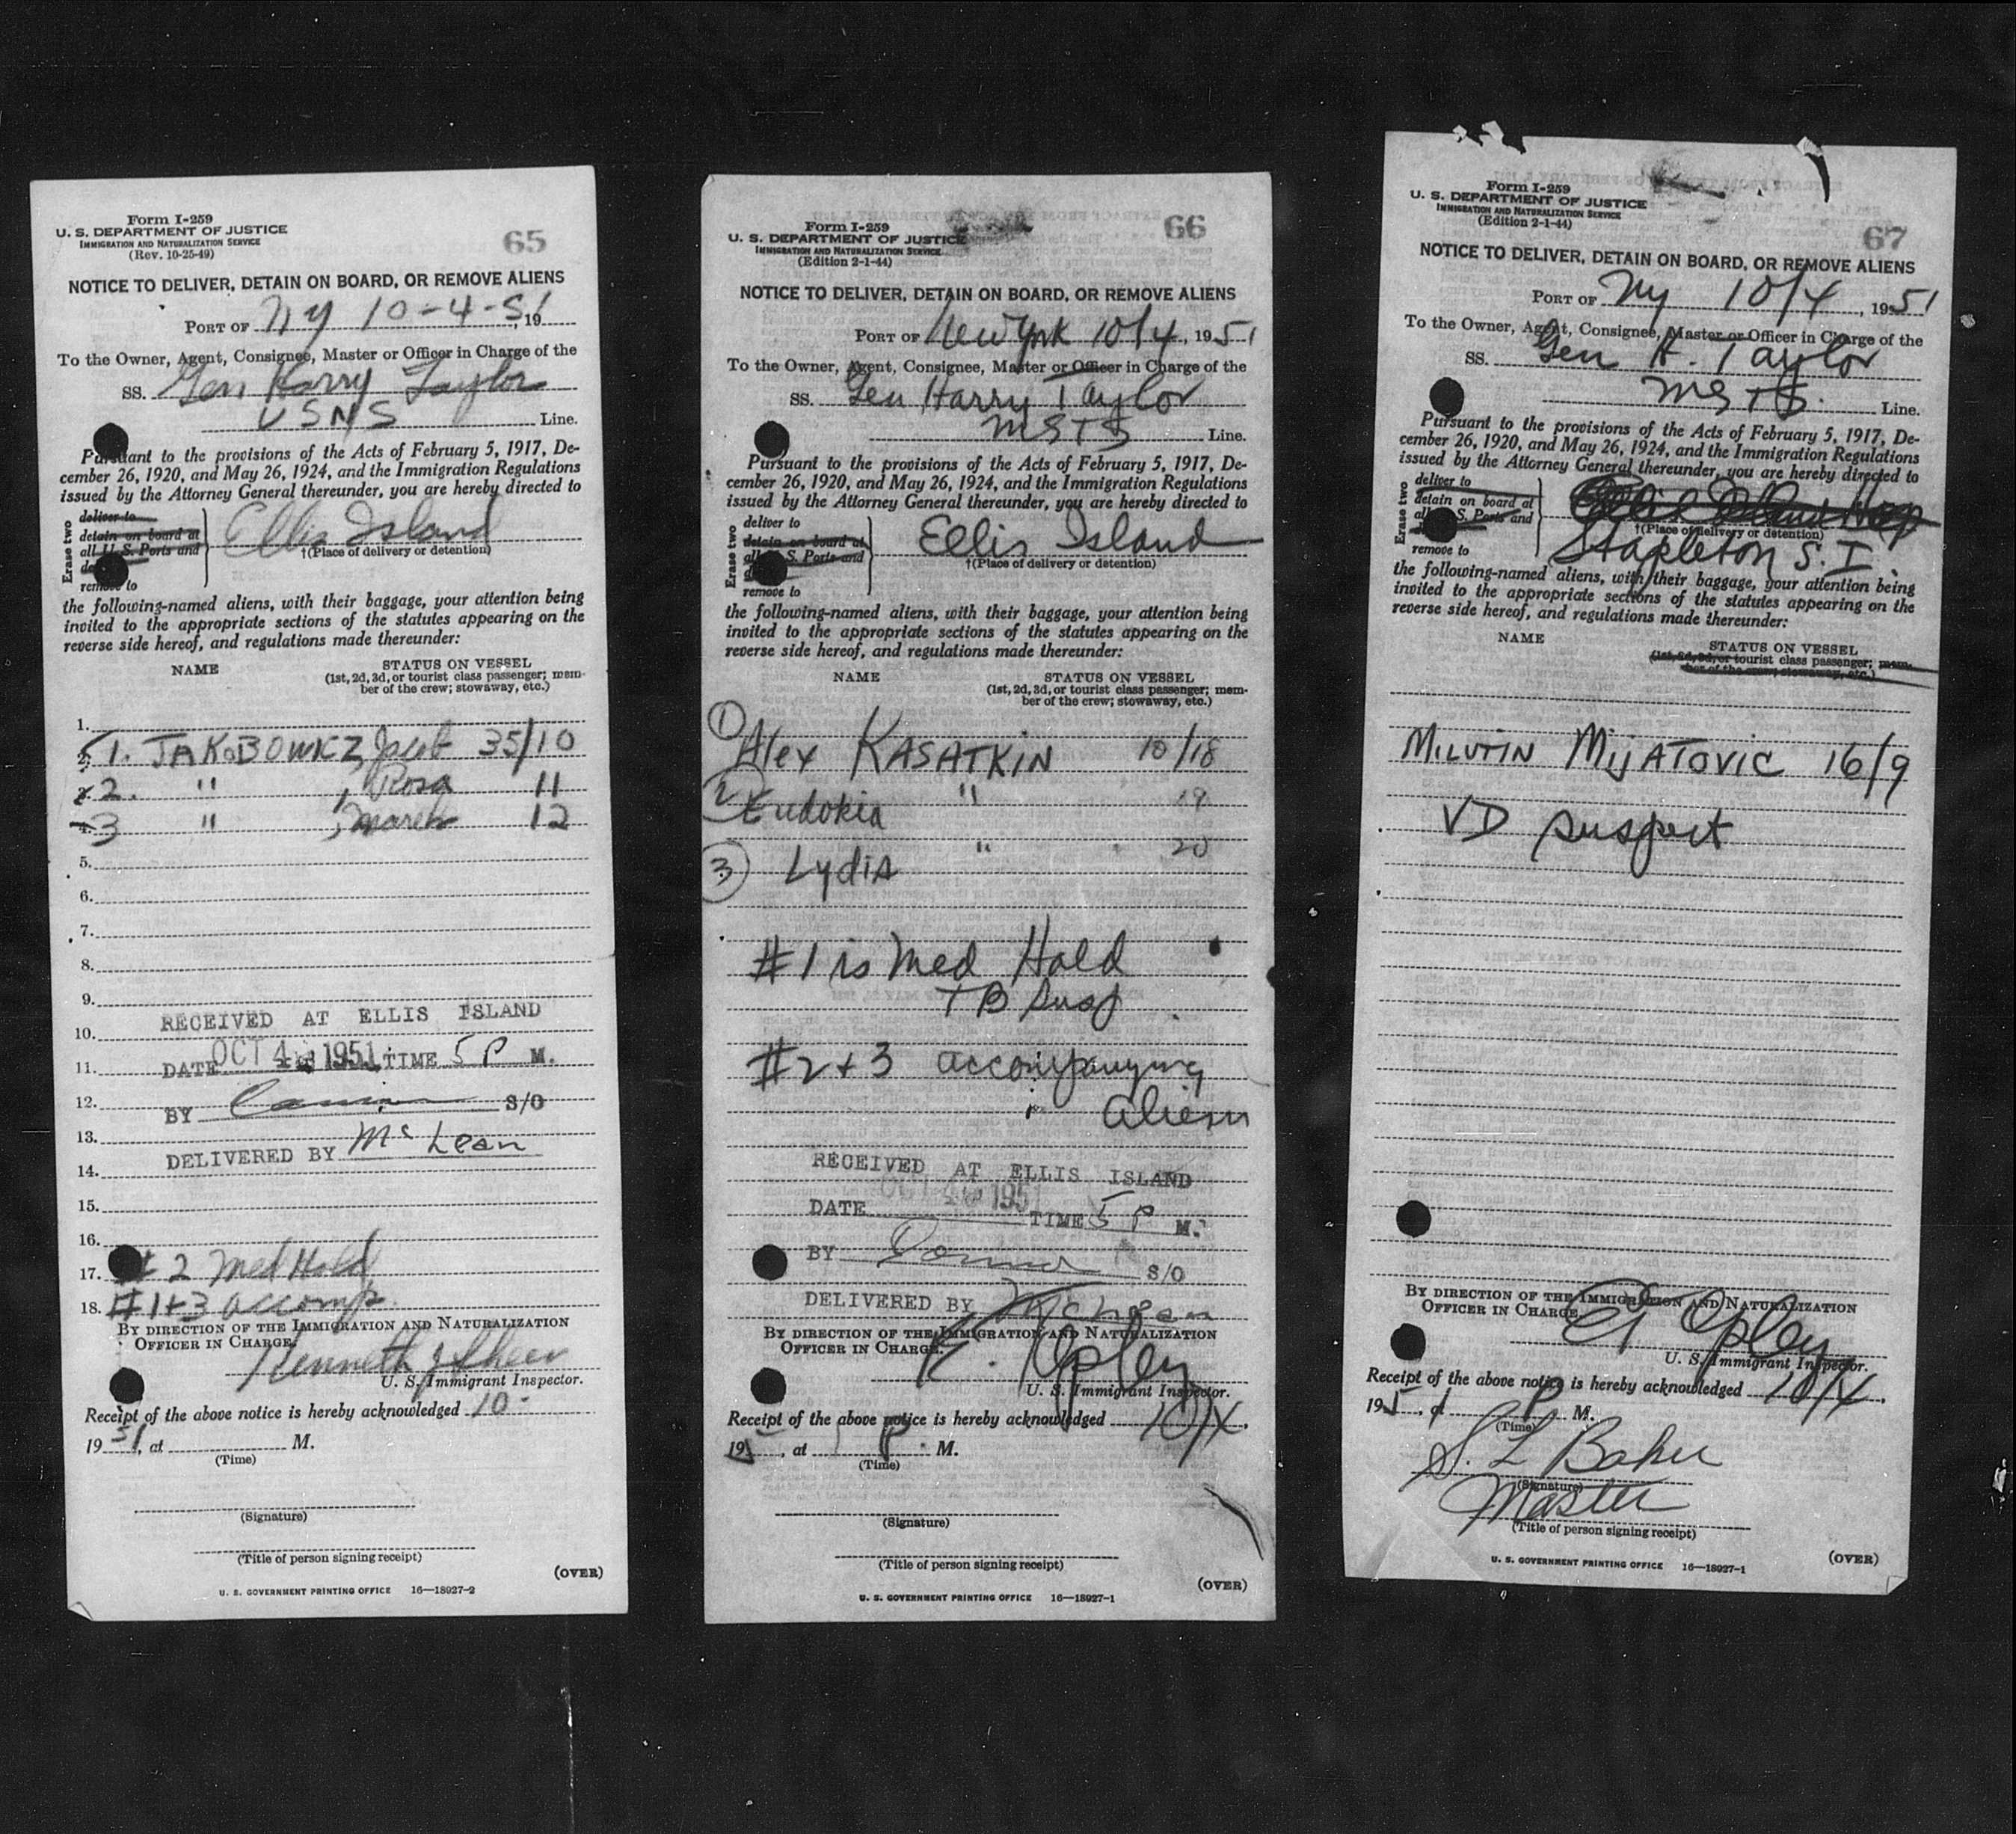 Form I-259
U. S. DEPARTMENT OF JUSTICE
IMMIGRATION AND NATURALIZATION SERVICE
(Rev. 10-25-49)
65
NOTICE TO DELIVER, DETAIN ON BOARD, OR REMOVE ALIENS
PORT OF NY 10-4-51, 19
To the Owner, Agent, Consignee, Master or Officer in Charge of the
SS. Gen Harry Taylor
USNS Line.
Pursuant to the provisions of the Acts of February 5, 1917, De-
cember 26, 1920, and May 26, 1924, and the Immigration Regulations
issued by the Attorney General thereunder, you are hereby directed to
Erase two
deliver to
detain on board at
all U. S. Ports and
remove to
Ellis Island
†(Place of delivery or detention)
the following-named aliens, with their baggage, your attention being
invited to the appropriate sections of the statutes appearing on the
reverse side hereof, and regulations made thereunder:
NAME STATUS ON VESSEL
(1st, 2d, 3d, or tourist class passenger; mem-
ber of the crew; stowaway, etc.)
1.
2. 1. JAKOBOWICZ, Jacob 35/10
3. 2. " , Rosa 11
4. 3 " , 12
5.
6.
7.
8.
9.
RECEIVED AT ELLIS ISLAND
10.
11. DATE OCT 4 1951 TIME 5 P M.
12. BY S/O
13.
DELIVERED BY McLean
14.
15.
16.
17. # 2 Med Hold
18. # 1+3 accomp.
BY DIRECTION OF THE IMMIGRATION AND NATURALIZATION
OFFICER IN CHARGE.
Kenneth J Sheer
U. S. Immigrant Inspector.
Receipt of the above notice is hereby acknowledged 10-
1951, at M.
(Time)
(Signature)
(Title of person signing receipt)
(OVER)
U. S. GOVERNMENT PRINTING OFFICE 16—18927-2
Form I-259
U. S. DEPARTMENT OF JUSTICE
IMMIGRATION AND NATURALIZATION SERVICE
(Edition 2-1-44)
66
NOTICE TO DELIVER, DETAIN ON BOARD, OR REMOVE ALIENS
PORT OF New York 10/4, 1951
To the Owner, Agent, Consignee, Master or Officer in Charge of the
SS. Gen Harry Taylor
MSTS Line.
Pursuant to the provisions of the Acts of February 5, 1917, De-
cember 26, 1920, and May 26, 1924, and the Immigration Regulations
issued by the Attorney General thereunder, you are hereby directed to
Erase two
deliver to
detain on board at
all U. S. Ports and
remove to
Ellis Island
†(Place of delivery or detention)
the following-named aliens, with their baggage, your attention being
invited to the appropriate sections of the statutes appearing on the
reverse side hereof, and regulations made thereunder:
NAME STATUS ON VESSEL
(1st, 2d, 3d, or tourist class passenger; mem-
ber of the crew; stowaway, etc.)
1 Alex KASATKIN 10/18
2 Eudokia " 19
3 Lydia " 20
#1 is Med Hold
TB Susp
#2+3 accompanying
aliens
RECEIVED AT ELLIS ISLAND
DATE OCT 4 1951 TIME 5 P M.
BY S/O
DELIVERED BY McLean
BY DIRECTION OF THE IMMIGRATION AND NATURALIZATION
OFFICER IN CHARGE.
E. Opley
U. S. Immigrant Inspector.
Receipt of the above notice is hereby acknowledged 10/4,
19 , at P. M.
(Time)
(Signature)
(Title of person signing receipt)
(OVER)
U. S. GOVERNMENT PRINTING OFFICE 16—18927-1
Form I-259
U. S. DEPARTMENT OF JUSTICE
IMMIGRATION AND NATURALIZATION SERVICE
(Edition 2-1-44)
67
NOTICE TO DELIVER, DETAIN ON BOARD, OR REMOVE ALIENS
PORT OF NY 10/4, 1951
To the Owner, Agent, Consignee, Master or Officer in Charge of the
SS. Gen H. Taylor
MSTS. Line.
Pursuant to the provisions of the Acts of February 5, 1917, De-
cember 26, 1920, and May 26, 1924, and the Immigration Regulations
issued by the Attorney General thereunder, you are hereby directed to
Erase two
deliver to
detain on board at
all U. S. Ports and
remove to
Ellis Island Hosp
†(Place of delivery or detention)
Stapleton S. I.
the following-named aliens, with their baggage, your attention being
invited to the appropriate sections of the statutes appearing on the
reverse side hereof, and regulations made thereunder:
NAME STATUS ON VESSEL
(1st, 2d, 3d, or tourist class passenger; mem-
ber of the crew; stowaway, etc.)
MILUTIN MIJATOVIC 16/9
VD suspect
BY DIRECTION OF THE IMMIGRATION AND NATURALIZATION
OFFICER IN CHARGE.
E Opley
U. S. Immigrant Inspector.
Receipt of the above notice is hereby acknowledged 10/4,
1951, at P M.
(Time)
S. L Baker
(Signature)
Master
(Title of person signing receipt)
(OVER)
U. S. GOVERNMENT PRINTING OFFICE 16—18927-1